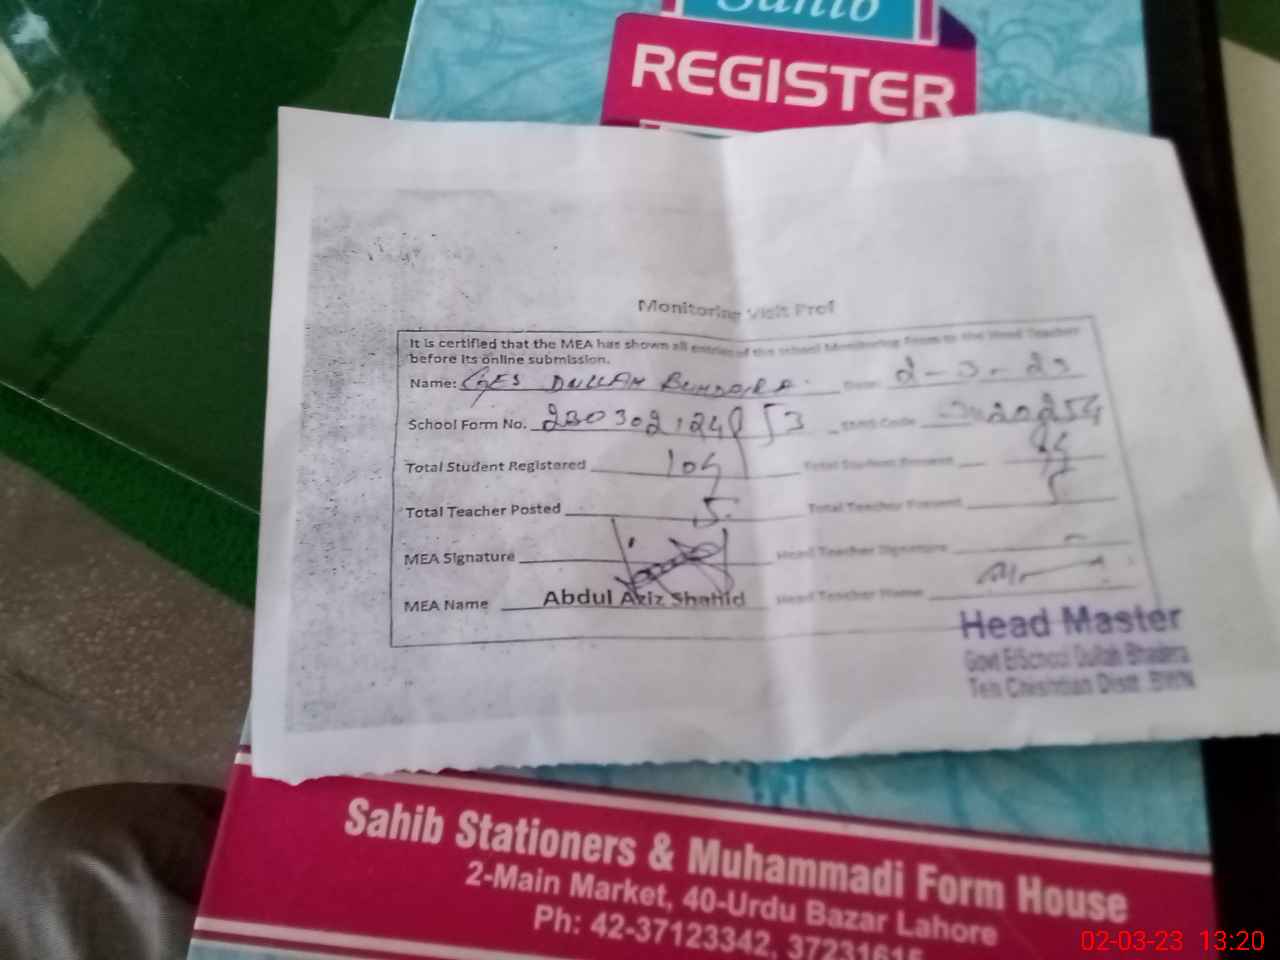 Sahib
REGISTER
Monitoring Visit Prof
It is certified that the MEA has shown all entries of the school Monitoring Form to the Head Teacher
before its online submission.
Name: GES DULLAH BHADERA Date: 2-3-23
School Form No. EMIS Code
Total Student Registered 104 Total Student Present
Total Teacher Posted 5 Total Teacher Present 5
MEA Signature Head Teacher Signature
MEA Name Abdul Aziz Shahid Head Teacher Name
Head Master
Govt E/School Dullah Bhadera
Teh Chishtian Distt BWN
Sahib Stationers & Muhammadi Form House
2-Main Market, 40-Urdu Bazar Lahore
Ph: 42-37123342, 37231615
02-03-23 13:20